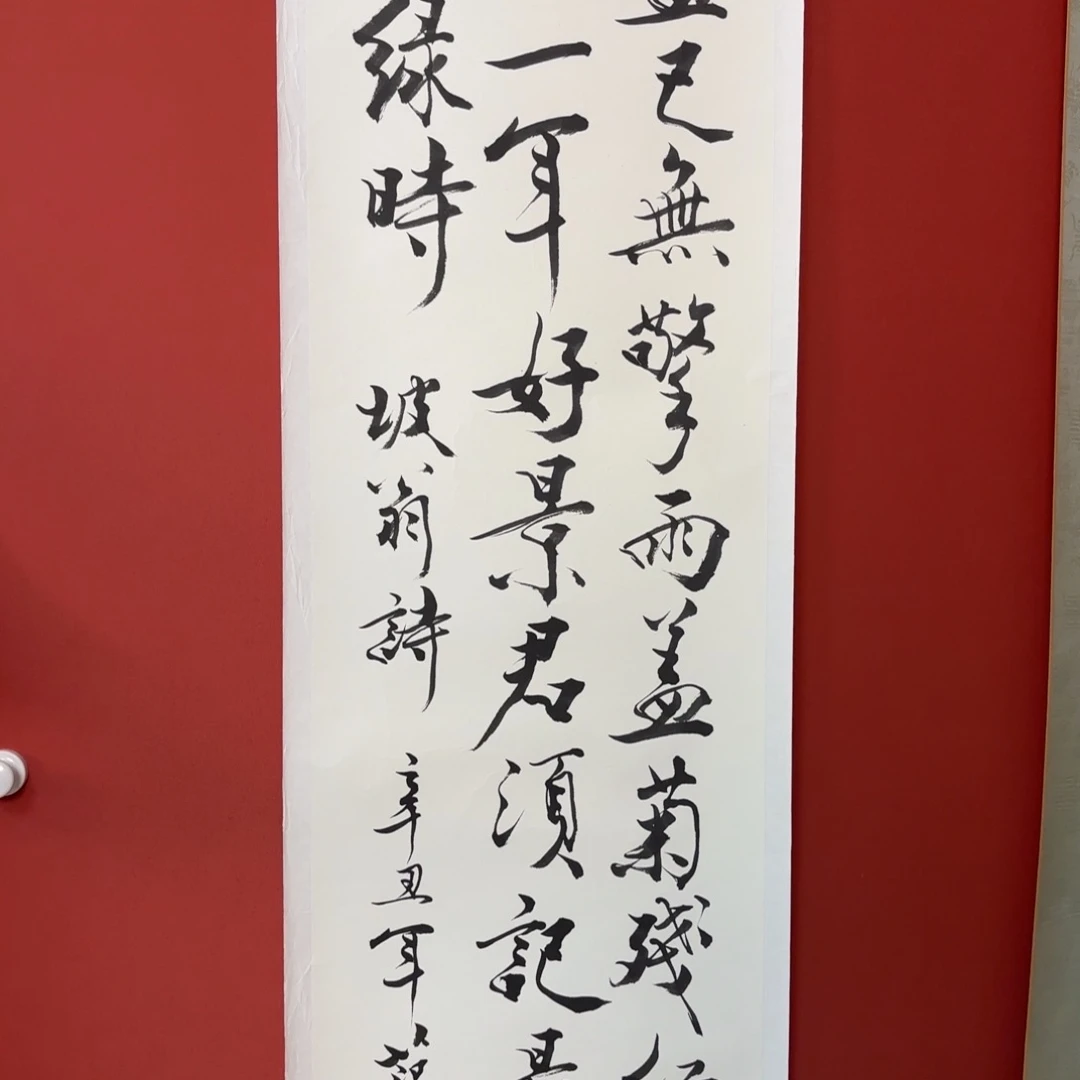 已無擎雨蓋菊殘
一年好景君須記
緑時 坡翁詩 辛丑年